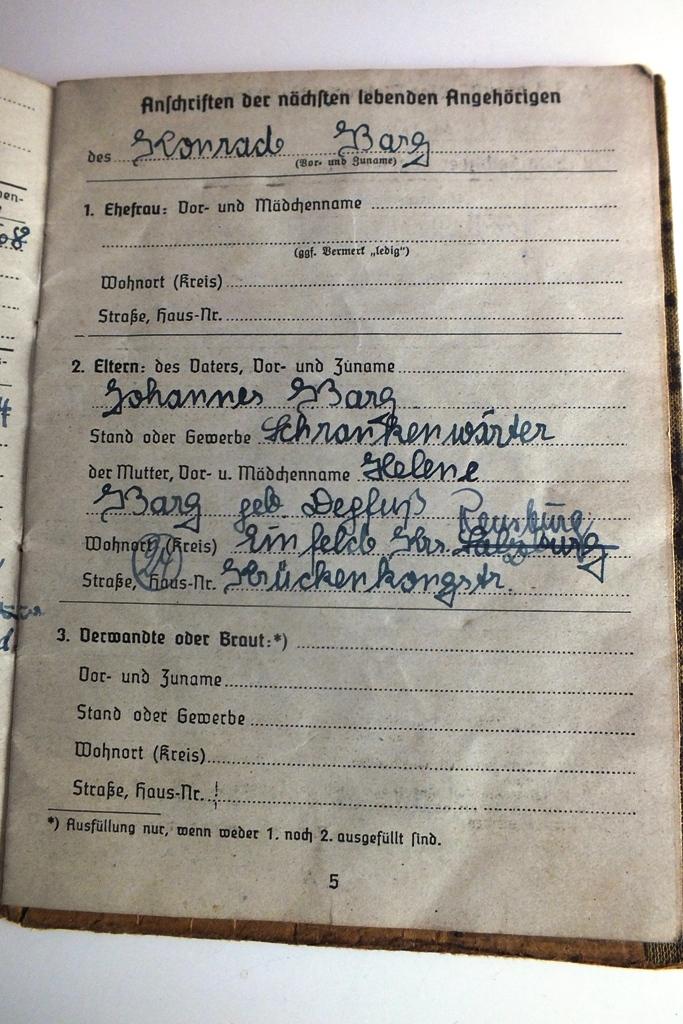 Anschriften der nächsten lebenden Angehörigen
des Konrad Barg
(Vor- und Zuname)
1. Ehefrau: Vor- und Mädchenname
(ggf. Vermerk „ledig")
Wohnort (Kreis)
Straße, Haus-Nr.
2. Eltern: des Vaters, Vor- und Zuname
Johannes Barg
Stand oder Gewerbe Schrankenwärter
der Mutter, Vor- u. Mädchenname Helene
Barg geb. Degfuß
Rensburg
Wohnort (Kreis) Einfeld Krs. Salzburg
Straße, Haus-Nr. Krückenkongstr.
24
3. Verwandte oder Braut:*)
Vor- und Zuname
Stand oder Gewerbe
Wohnort (Kreis)
Straße, Haus-Nr.
*) Ausfüllung nur, wenn weder 1. noch 2. ausgefüllt sind.
5